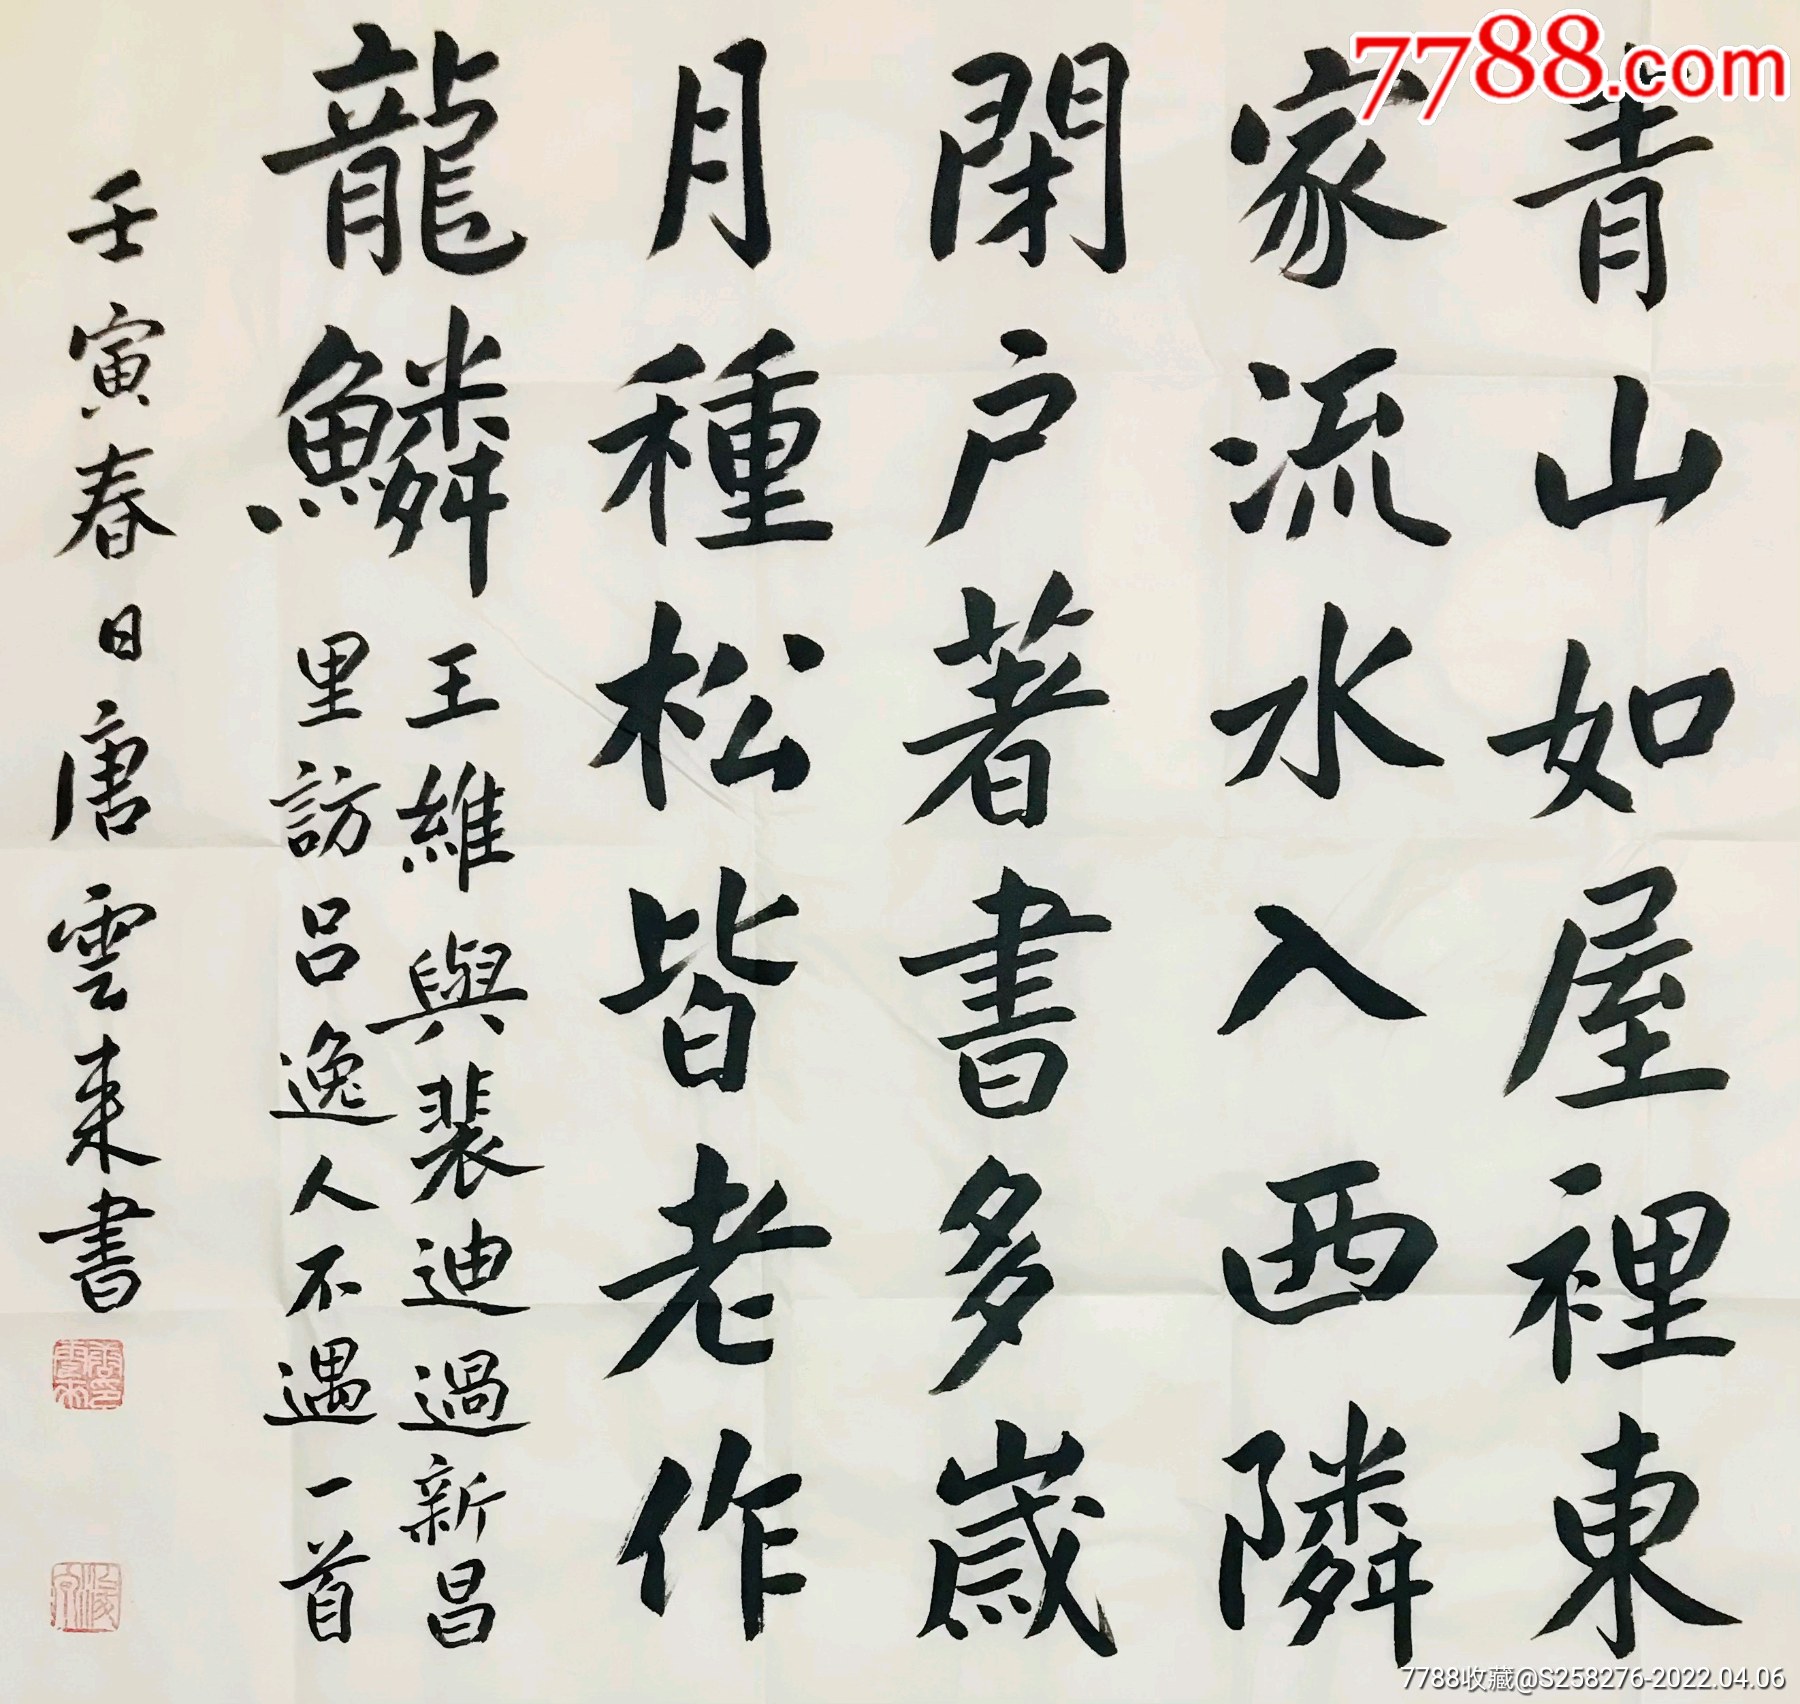 青山如屋裡東
家流水入西隣
閉户著書多歲
月種松皆老作
龍鱗
王維與裴迪過新昌
里訪呂逸人不遇一首
壬寅春日唐雲來書
7788.com
7788收藏@S258276-2022.04.06